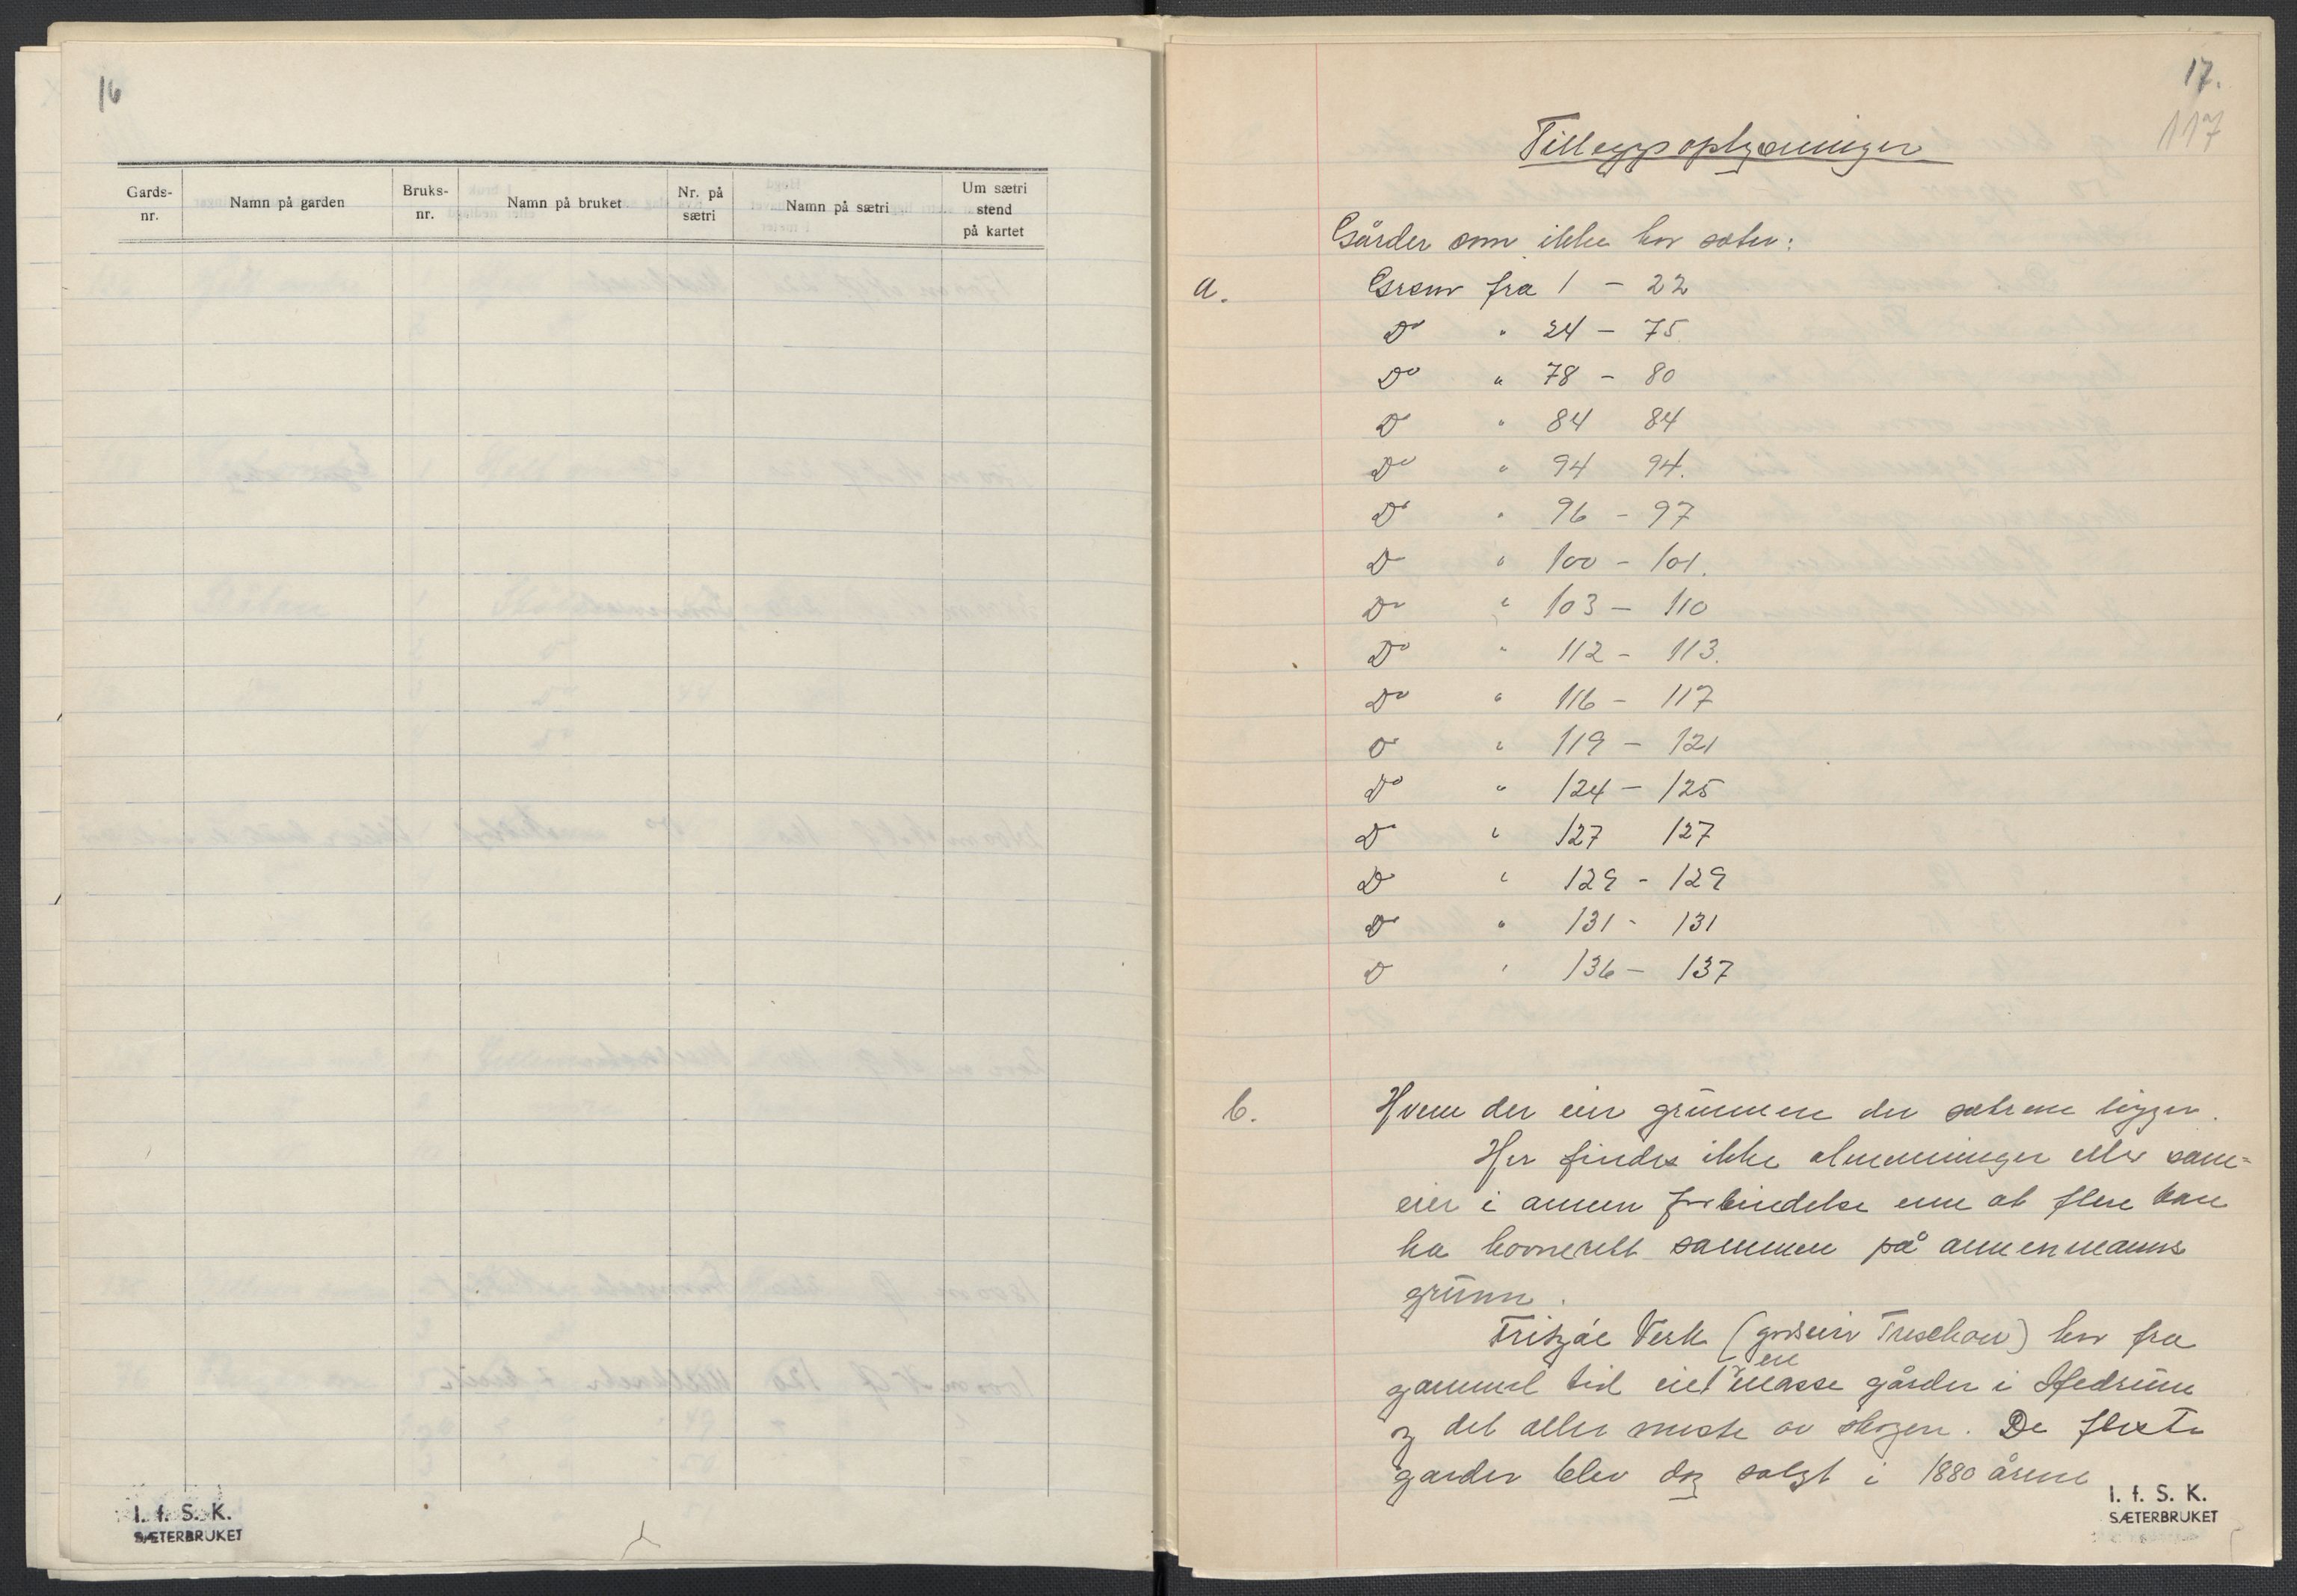 16
Gards-
nr.
Namn på garden
Bruks-
nr.
Namn på bruket
Nr. på
sætri
Namn på sætri
Um sætri
stend
på kartet
I. f. S. K.
SÆTERBRUKET
17.
117
Tilleggsoplysninger
Gårder som ikke har sæter:
a. Grsnr fra 1 - 22
Do " 24 - 75
Do " 78 - 80
Do " 84 84
Do " 94 94.
Do " 96 - 97
Do " 100 - 101.
Do " 103 - 110
Do " 112 - 113.
Do " 116 - 117
Do " 119 - 121
Do " 124 - 125
Do " 127 127
Do " 129 - 129
Do " 131 - 131
Do " 136 - 137
b. Hvem der eier grunnen der sætrene ligger.
Her findes ikke almenninger eller sam-
eier i annen forbindelse enn at flere kan
ha havnerett sammen på annenmanns
grunn.
Fritzöe Verk (godseier Treschow) har fra
gammel tid eiet en masse gårder i Hedrum
og det aller meste av skogen. De fleste
garder blev dog solgt i 1880 årene
I. f. S. K.
SÆTERBRUKET